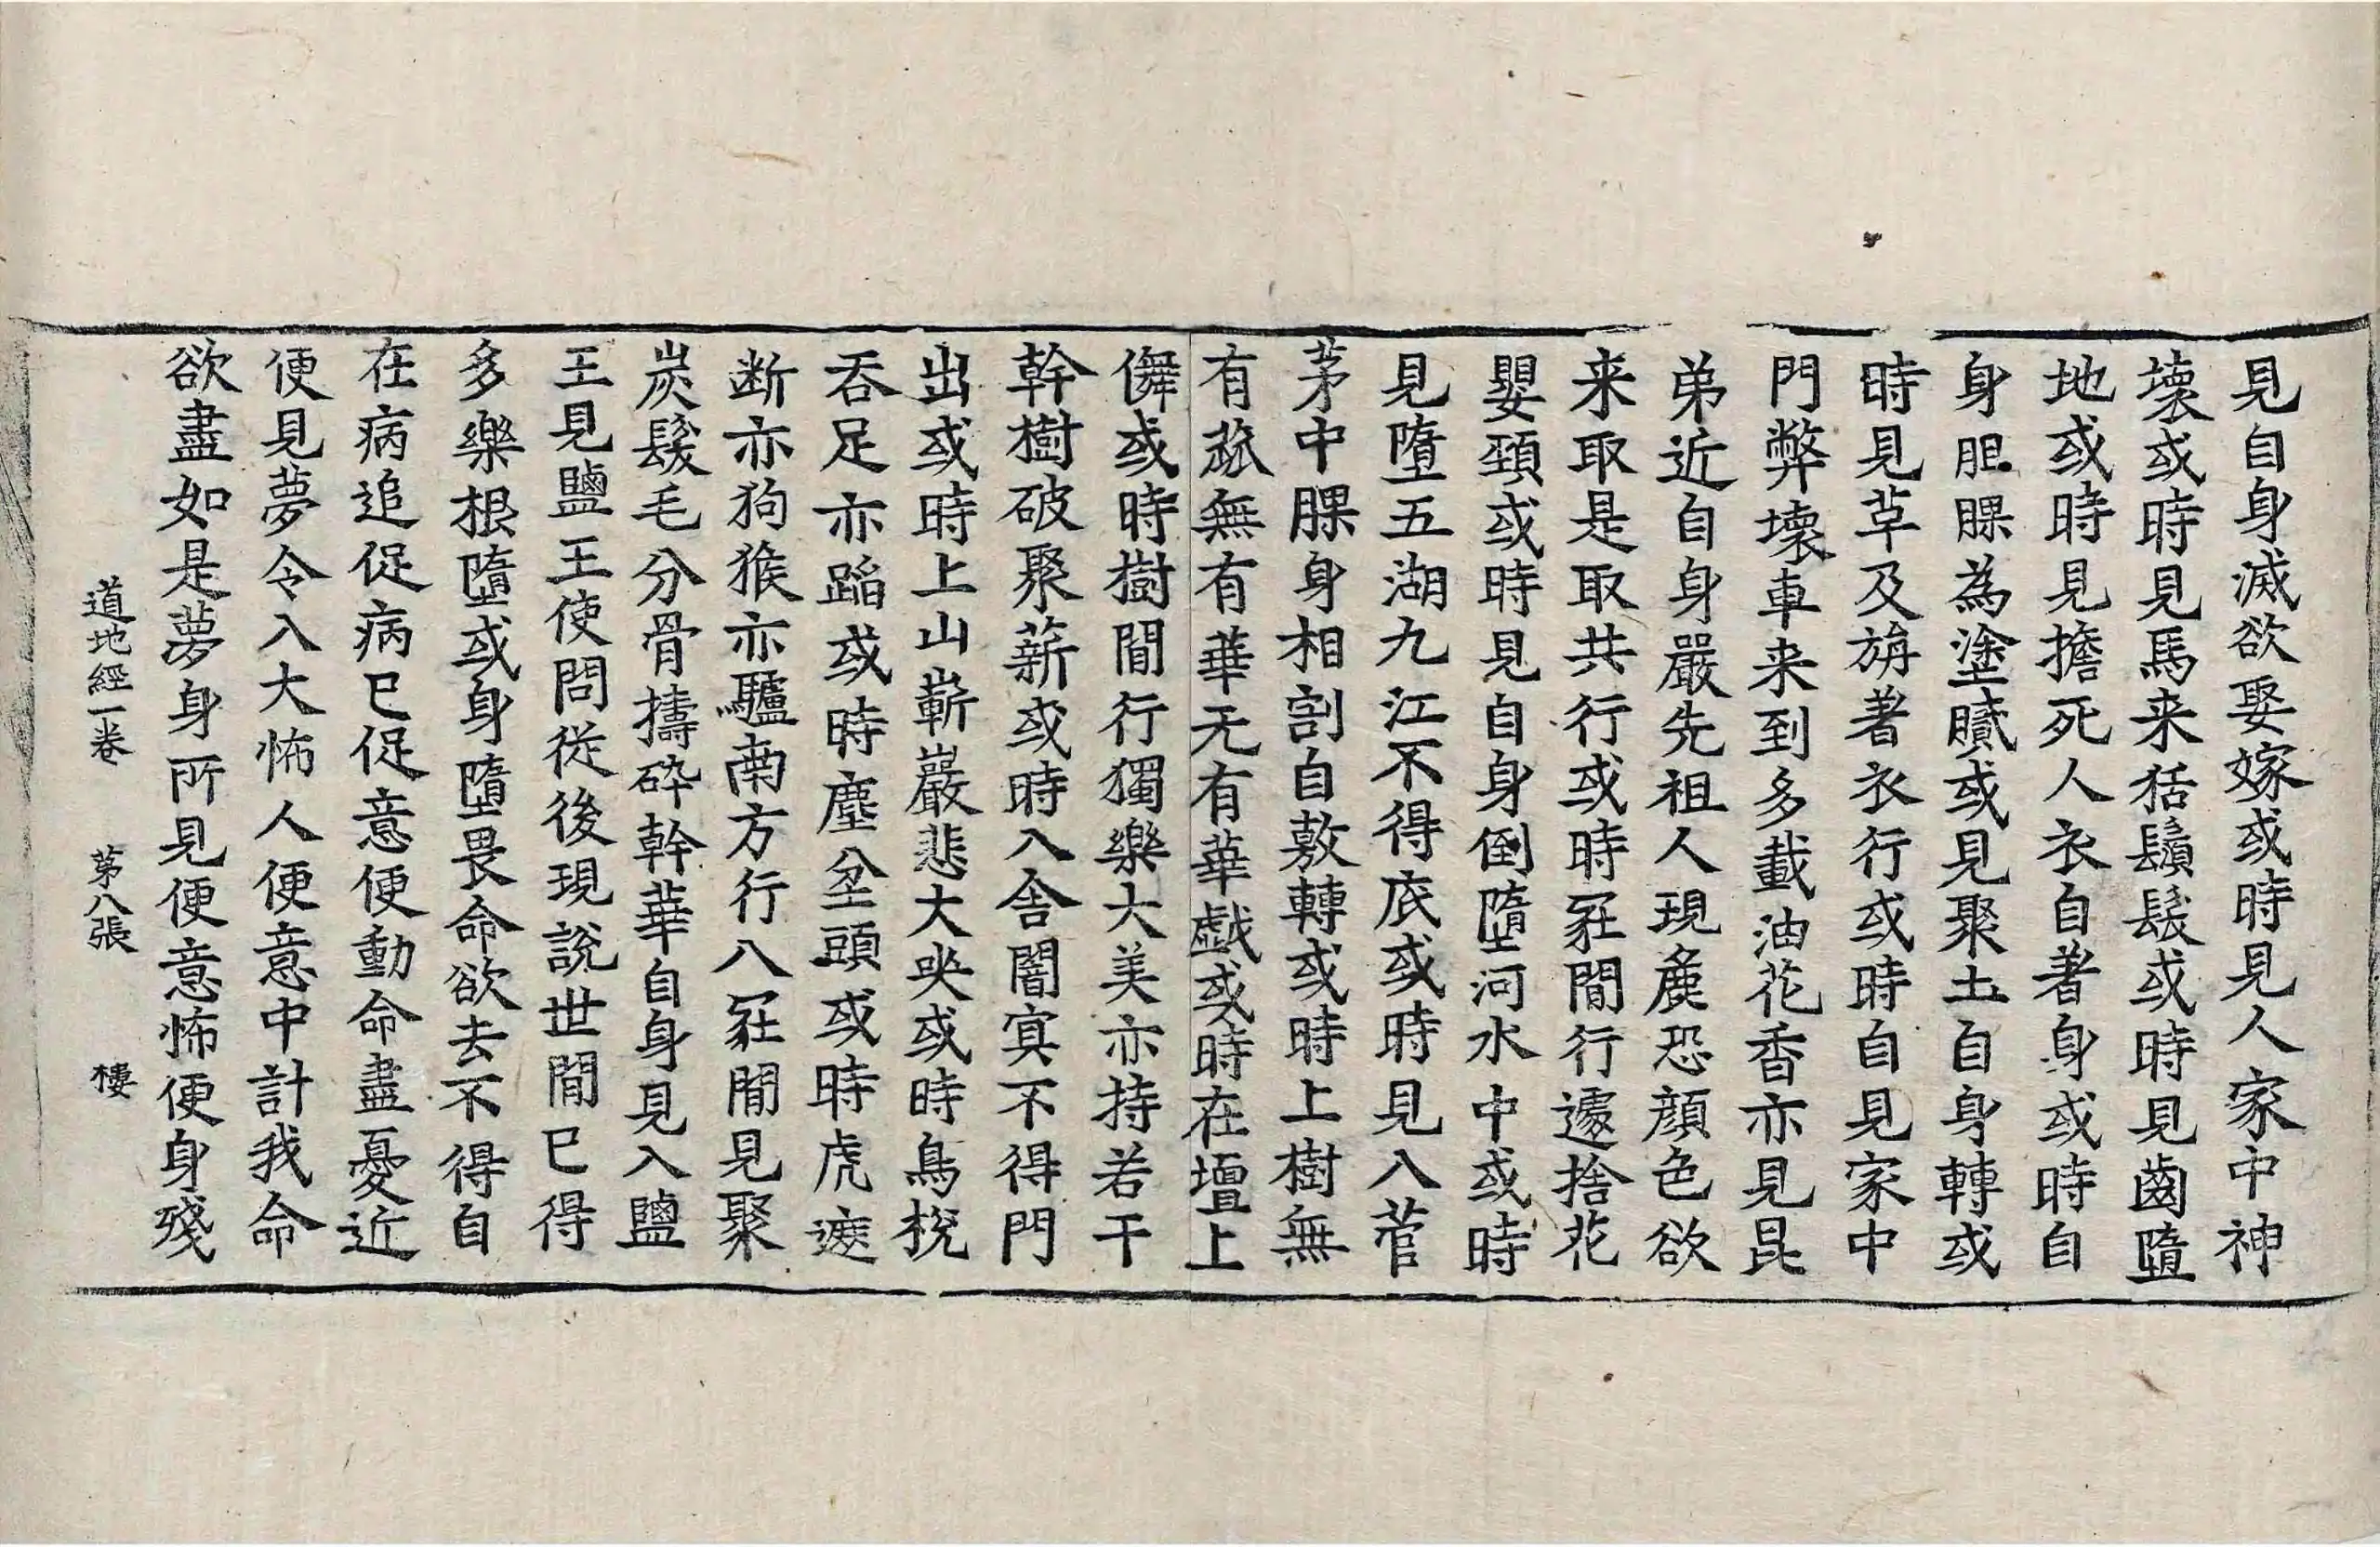 見自身滅欲娶嫁或時見人家中神
壞或時見馬来狧鬚髮或時見齒墮
地或時見擔死人衣自著身或時自
身胆臝為塗膩或見聚土自身轉或
時見草及旃著衣行或時自見家中
門弊壞車来到多載油花香亦見昆
弟近自身嚴先祖人現麁恐顔色欲
来取是取共行或時冢間行遽捨花
嬰頚或時見自身倒墮河水中或時
見墮五湖九江不得底或時見入菅
茅中臝身相割自敷轉或時上樹無
有蓏無有華无有華戯或時在壇上
儛或時樹間行獨樂大美亦持若干
幹樹破聚薪或時入舎闇冥不得門
出或時上山嶄巖悲大哭或時鳥梲
吞足亦蹈或時塵坌頭或時虎遮
断亦狗猴亦驢南方行入冢間見聚
炭髮毛分骨擣碎幹華自身見入鹽
王見鹽王使問従後現說世間已得
多樂根墮或身墮畏命欲去不得自
在病追促病已促意便動命盡憂近
便見夢令入大怖人便意中計我命
欲盡如是夢身所見便意怖便身殘
道地經一卷 苐八張 樓